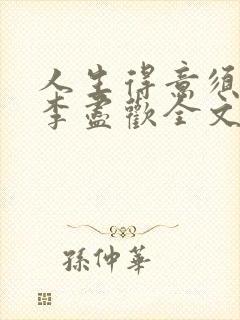 人生得意须
李盡歡全文
孫仲華